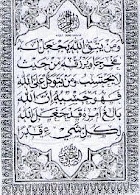 وَمَنْ يَتَّقِ اللّٰهَ يَجْعَلْ لَهُ
مَخْرَجًا وَيَرْزُقْهُ مِنْ حَيْثُ
لَا يَحْتَسِبُ وَمَنْ يَتَوَكَّلْ عَلَى اللّٰهِ
فَهُوَ حَسْبُهُ إِنَّ اللّٰهَ
بَالِغُ أَمْرِهِ قَدْ جَعَلَ اللّٰهُ
لِكُلِّ شَيْءٍ قَدْرًا